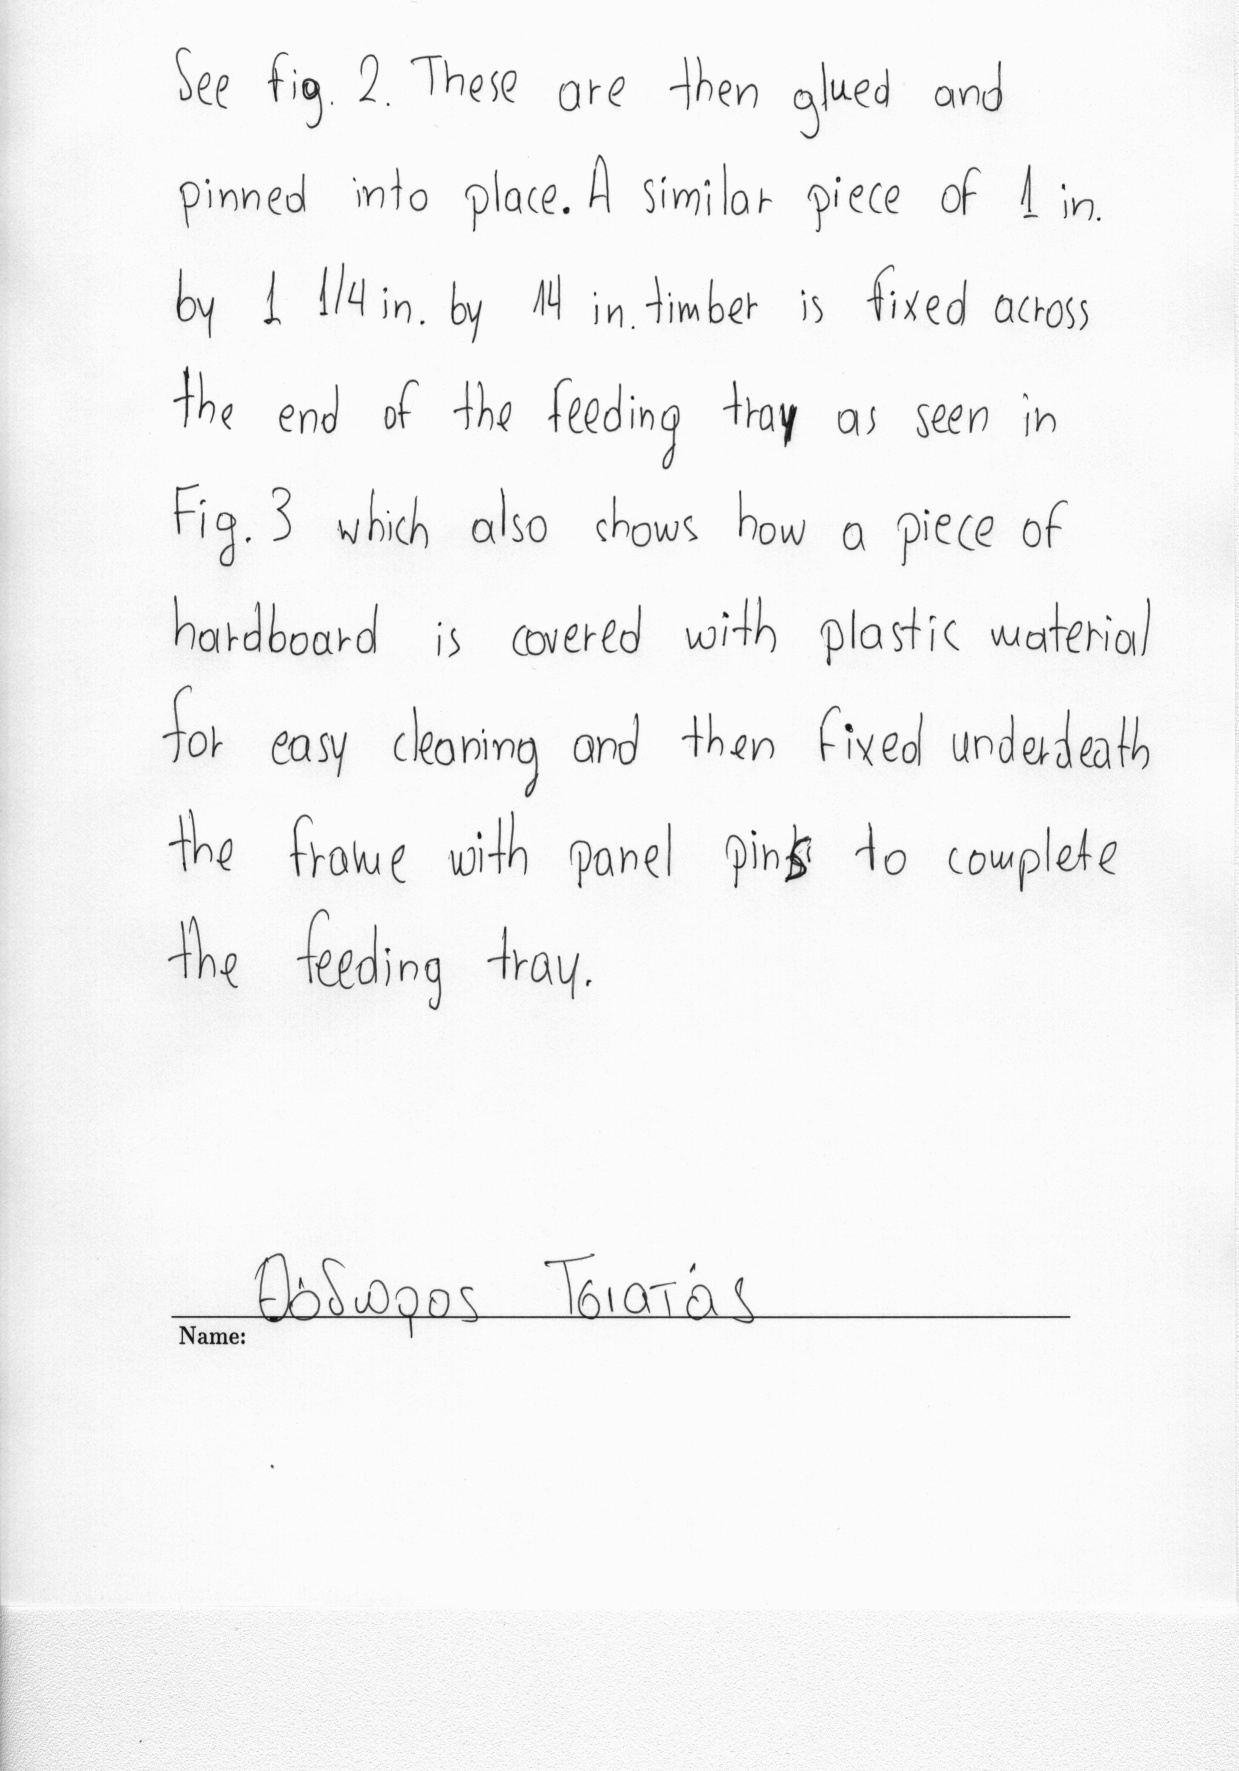 See fig. 2. These are then glued and
pinned into place. A similar piece of 1 in.
by 1 1/4 in. by 14 in. timber is fixed across
the end of the feeding tray as seen in
Fig. 3 which also shows how a piece of
hardboard is covered with plastic material
for easy cleaning and then fixed underdeath
the frame with panel pins to complete
the feeding tray.
Θόδωρος Τσιατάς
Name: